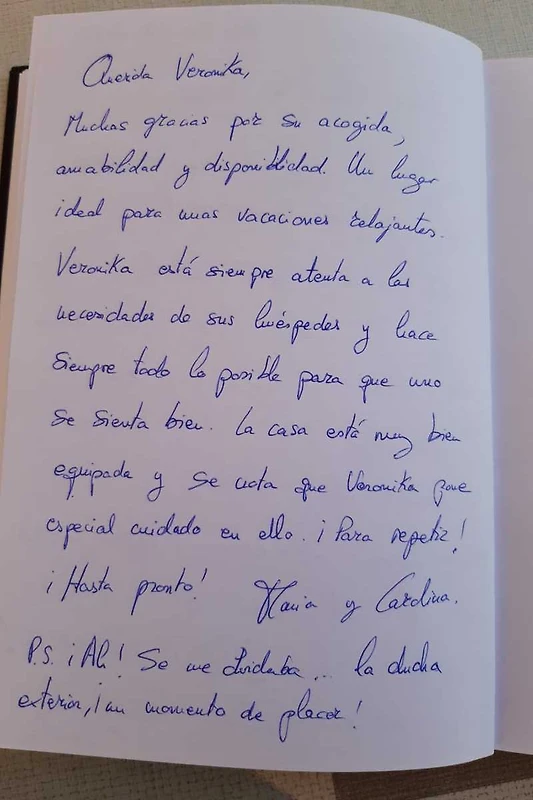 Querida Veronika,
Muchas gracias por su acogida,
amabilidad y disponiblidad. Un lugar
ideal para unas vacaciones relajantes.
Veronika está siempre atenta a las
necesidades de sus huéspedes y hace
siempre todo lo posible para que uno
se sienta bien. La casa está muy bien
equipada y se nota que Veronika pone
especial cuidado en ello. ¡Para repetir!
¡Hasta pronto! y
P.S. ¡Ah! Se me olvidaba... la ducha
exterior, ¡un momento de placer!